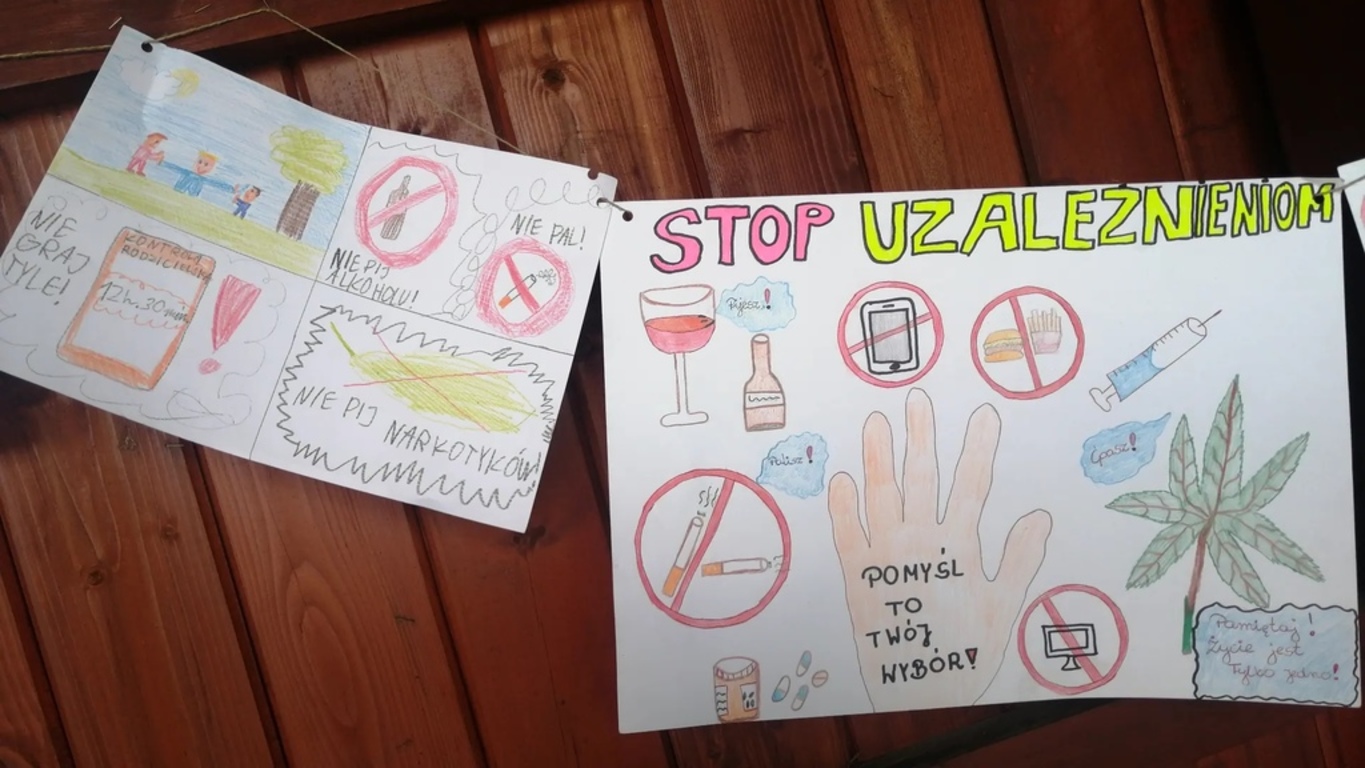 NIE
GRAJ
TYLE!
KONTROLA
RODZICIELSKA
12h.30min
NIE PIJ
ALKOHOLU!
NIE PAL!
NIE PIJ
NARKOTYKÓW!
STOP UZALEŻNIENIOM
Pijesz!
Palisz!
Ćpasz!
POMYŚL
TO
TWÓJ
WYBÓR!
Pamiętaj!
Życie jest
Tylko jedno!